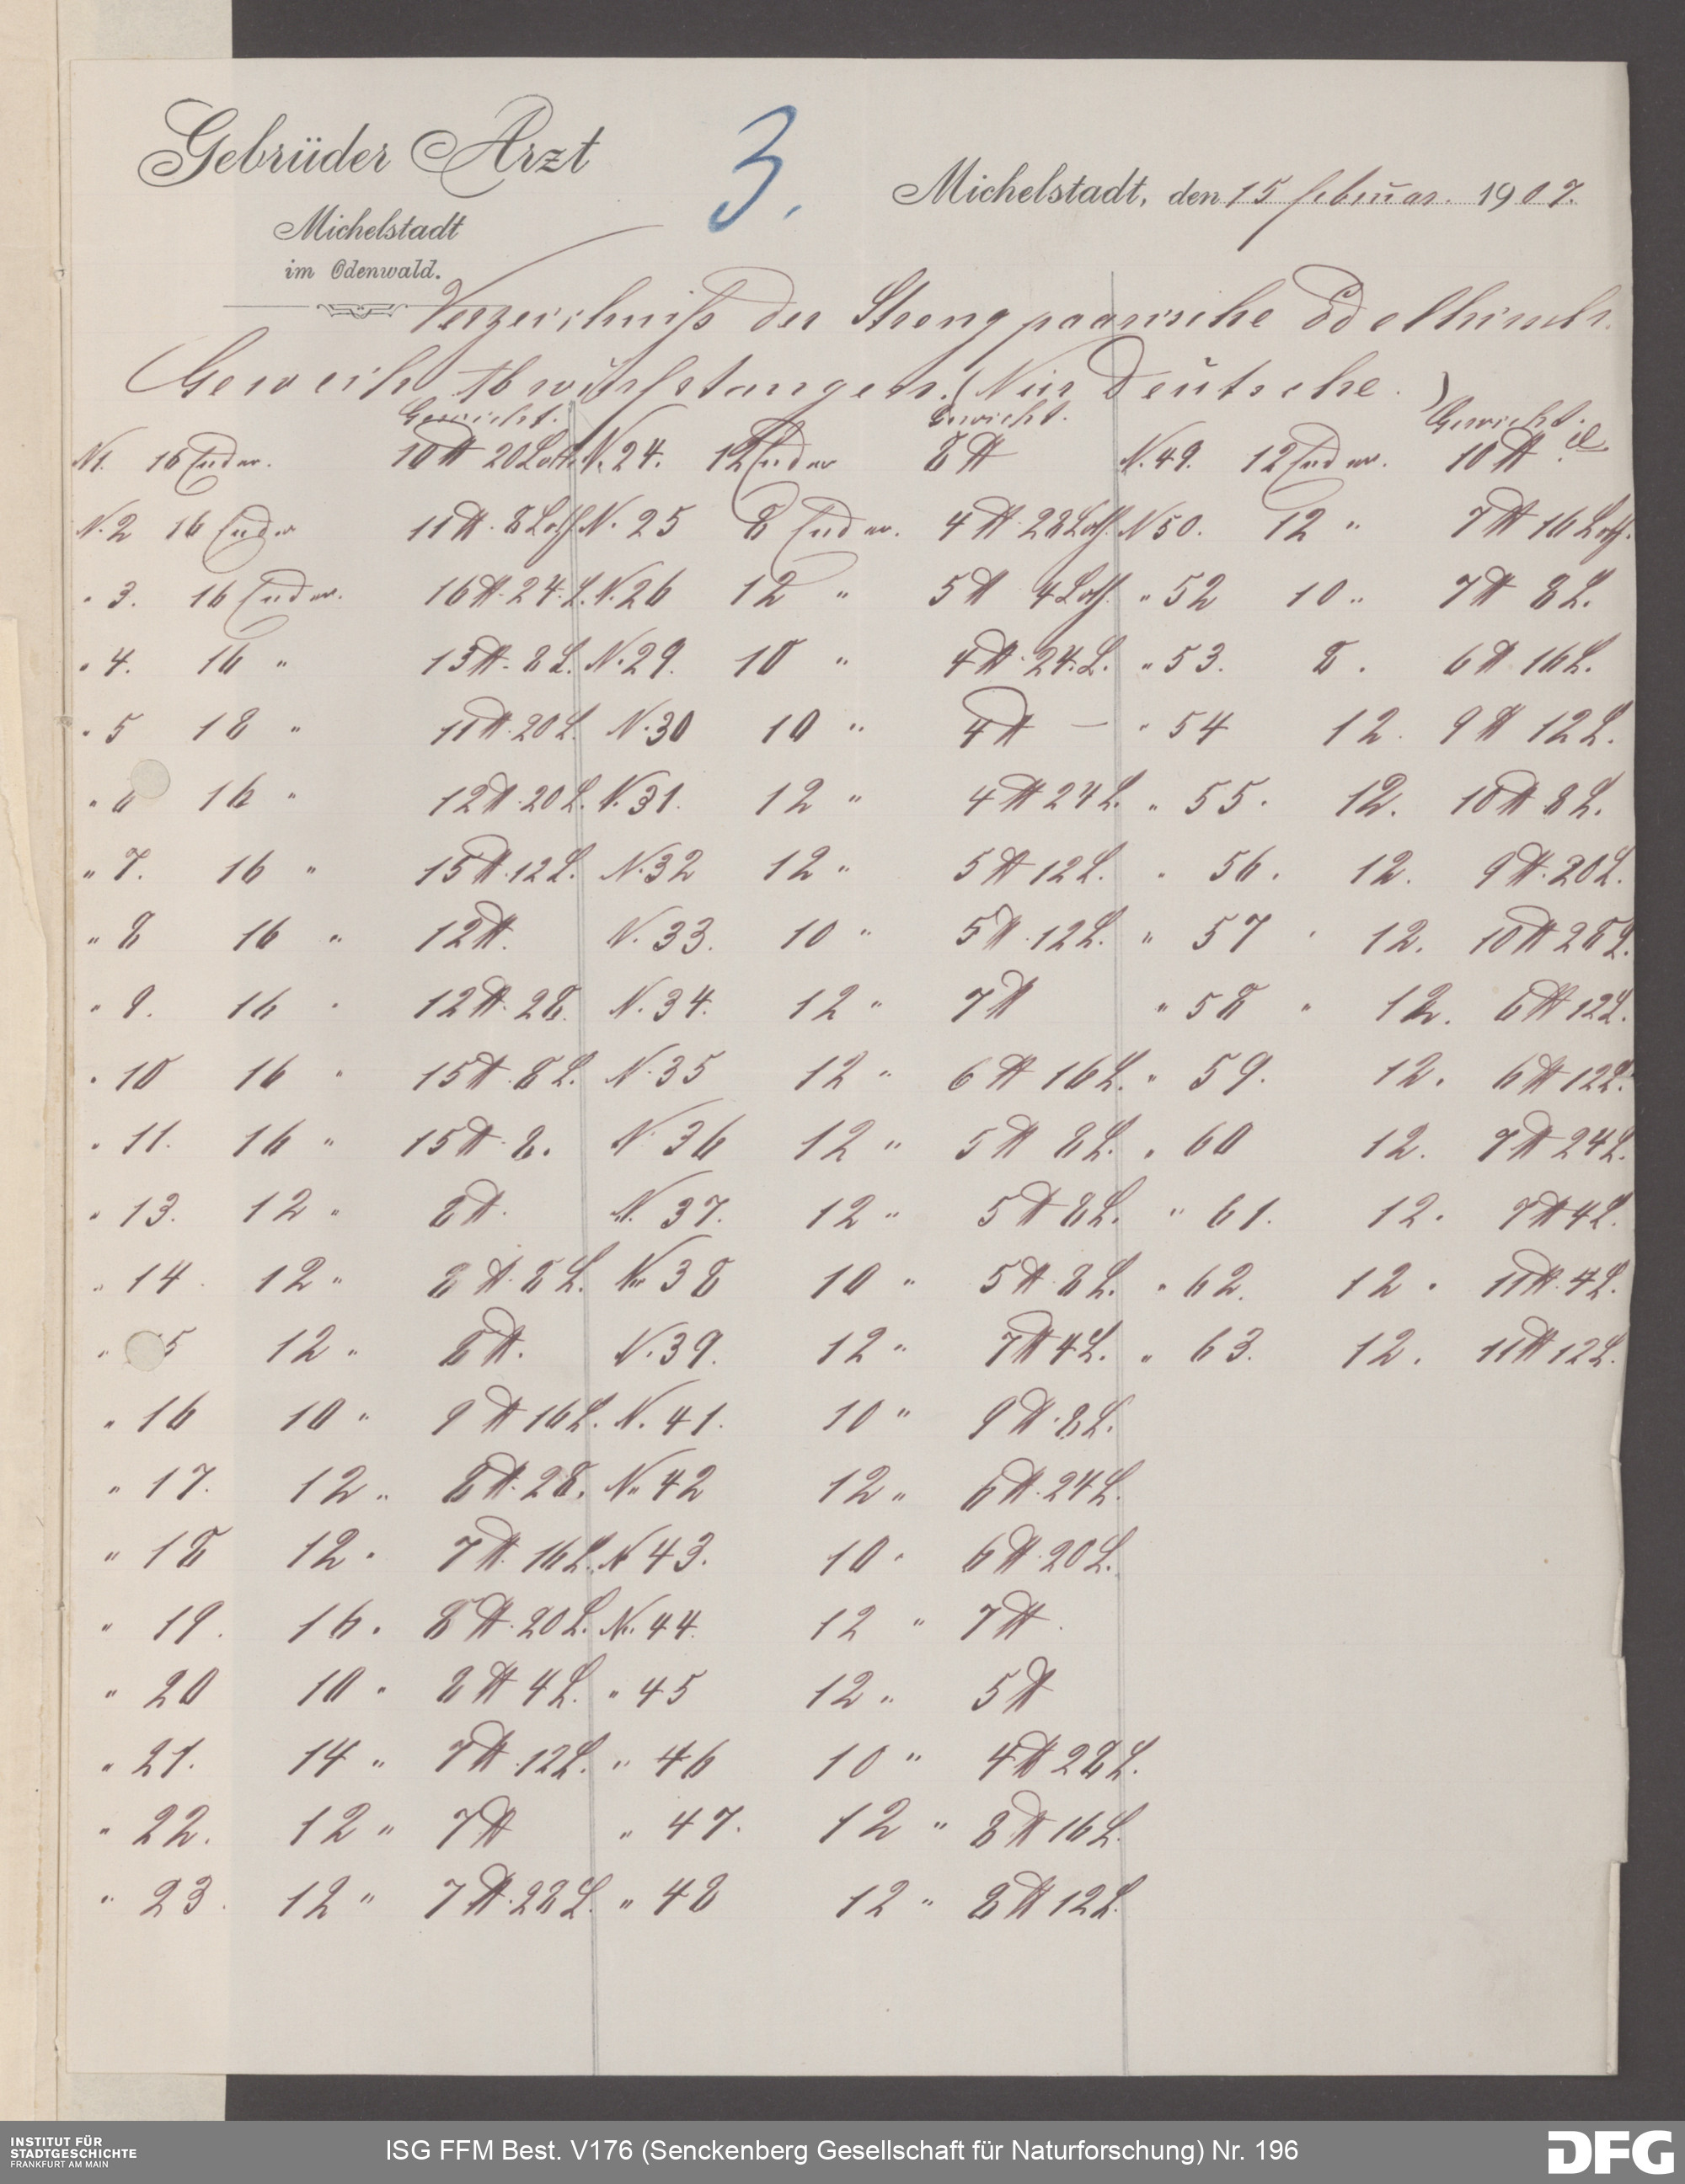 Gebrüder Arzt
3.
Michelstadt, den 15 Februar. 1907.
Michelstadt
im Odenwald.
Verzeichniß der Streng paarische Edelhirsch.
Geweih Abwurfstangen. (Nur Deutsche.)
Gewicht. Gewicht. Gewicht.
N1. 16 Ender. 10 ℔ 20 Loth. N. 24. 12 Ender 8 ℔ N. 49. 12 Ender. 10 ℔
N. 2 16 Ender 11 ℔. 8 Loth N. 25 8 Ender. 4 ℔ 28 Loth. N 50. 12 " 7 ℔ 16 Loth.
" 3. 16 Ender. 16 ℔. 24. L. N. 26 12 " 5 ℔ 4 Loth. " 52 10 " 7 ℔ 8 L.
" 4. 16 " 13 ℔. 8 L. N. 29. 10 " 4 ℔. 24. L. " 53. 8 . 6 ℔ 16 L.
" 5 18 " 11 ℔. 20 L. N. 30 10 " 4 ℔ — " 54 12. 9 ℔ 12 L.
" 6 16 " 12 ℔. 20 L. N. 31. 12 " 4 ℔ 24 L. " 55. 12. 10 ℔ 8 L.
" 7. 16 " 15 ℔. 12 L. N. 32 12 " 5 ℔ 12 L. " 56. 12. 9 ℔. 20 L.
" 8 16 " 12 ℔. N. 33. 10 " 5 ℔. 12 L. " 57 " 12. 10 ℔ 28 L.
" 9. 16 " 12 ℔. 28. N. 34. 12 " 7 ℔ " 58 " 12. 6 ℔ 12 L.
" 10 16 " 15 ℔. 8 L. N. 35 12 " 6 ℔ 16 L. " 59. 12. 6 ℔ 12 L.
" 11. 16 " 15 ℔. 8. N. 36 12 " 5 ℔ 8 L. " 60 12. 7 ℔ 24 L.
" 13. 12 " 8 ℔. N. 37. 12 " 5 ℔ 8 L. " 61. 12. 7 ℔ 4 L.
" 14. 12 " 8 ℔. 8 L. N. 38 10 " 5 ℔. 8 L. " 62. 12. 11 ℔. 4 L.
" 5 12 " 8 ℔. N. 39. 12 " 7 ℔ 4 L. " 63. 12. 11 ℔ 12 L.
" 16 10 " 9 ℔ 16 L. N. 41. 10 " 9 ℔. 8 L.
" 17. 12 " 8 ℔. 28. N. 42 12 " 6 ℔. 24 L.
" 18 12 " 7 ℔. 16 L. N 43. 10 " 6 ℔. 20 L.
" 19. 16. 8 ℔. 20 L. N. 44. 12 " 7 ℔.
" 20 10 " 8 ℔ 4 L. " 45 12 " 5 ℔
" 21. 14 " 7 ℔. 12 L. " 46 10 " 4 ℔ 28 L.
" 22. 12 " 7 ℔ " 47. 12 " 8 ℔ 16 L.
" 23. 12 " 7 ℔. 28 L. " 48 12 " 8 ℔ 12 L.
INSTITUT FÜR
STADTGESCHICHTE
FRANKFURT AM MAIN
ISG FFM Best. V176 (Senckenberg Gesellschaft für Naturforschung) Nr. 196
DFG